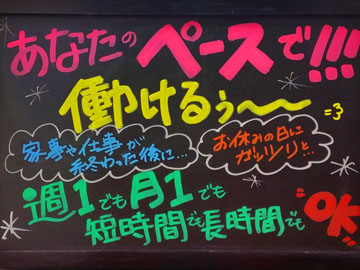 あなたのペースで!!!
働けるぅ〜〜 =3
家事や仕事が
終わった後に…
お休みの日に
ガッツリと…
週1でも月1でも
短時間でも長時間でも
OK